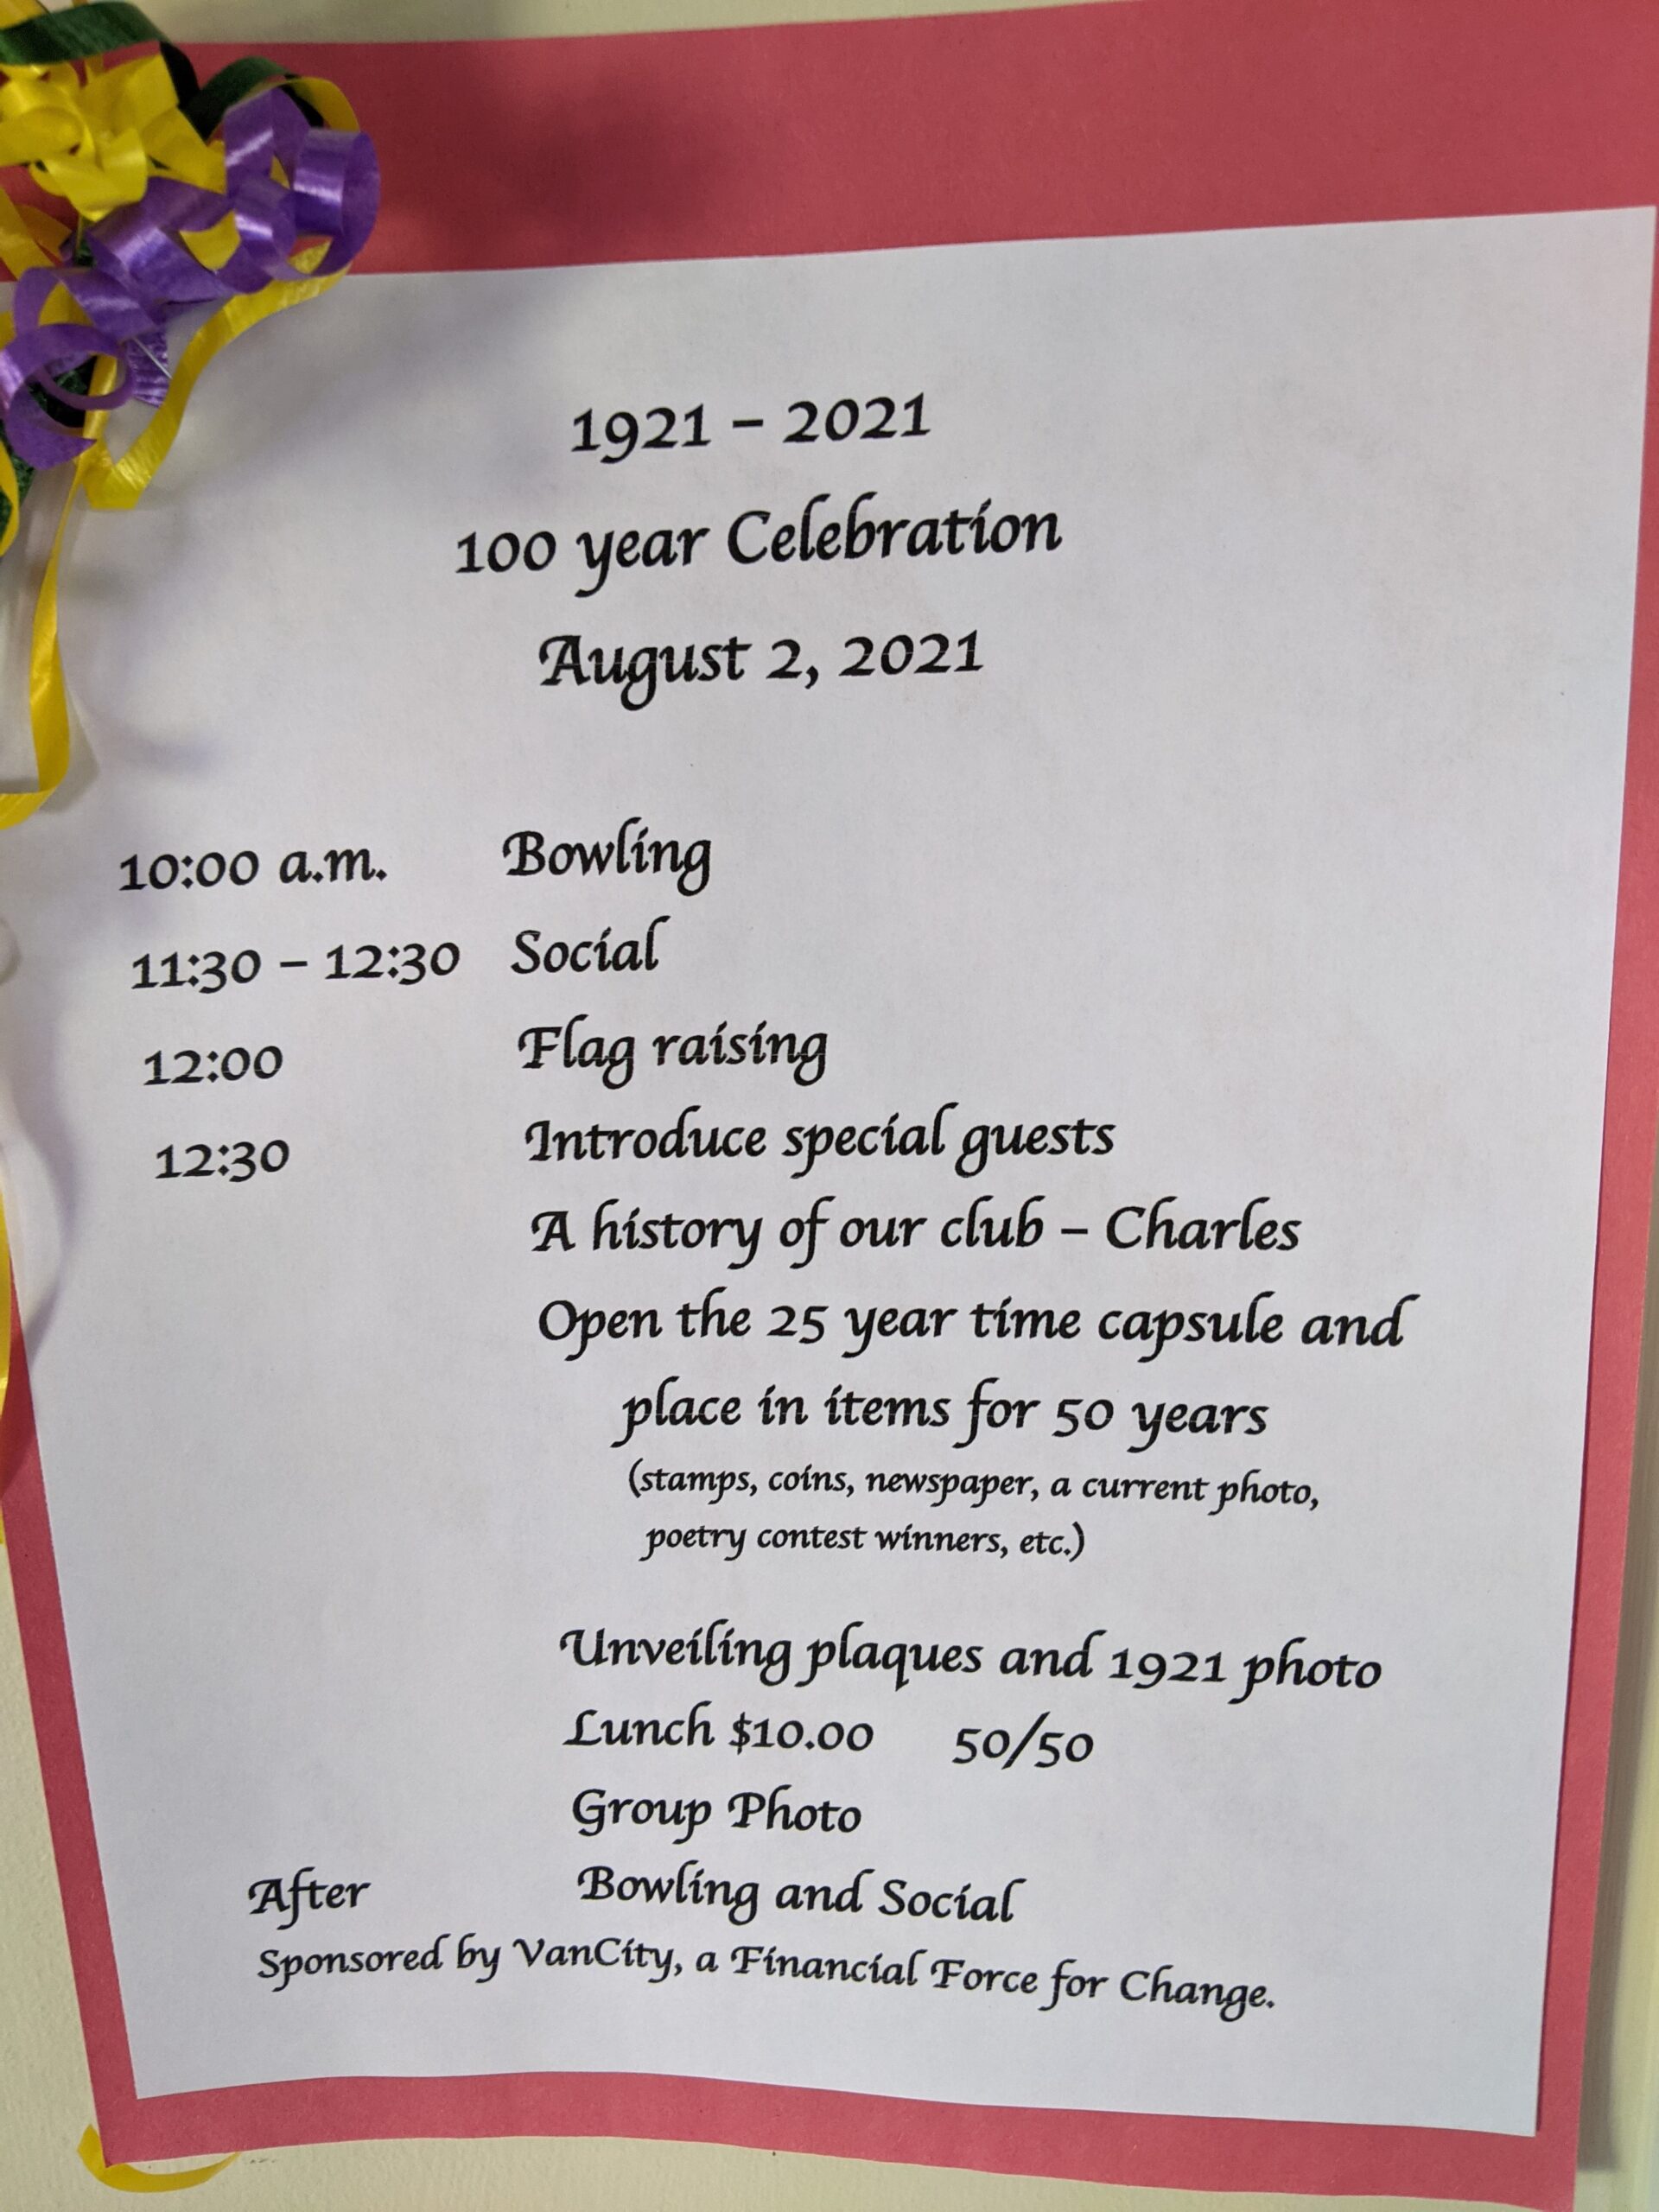 1921 – 2021
100 year Celebration
August 2, 2021
10:00 a.m. Bowling
11:30 – 12:30 Social
12:00 Flag raising
12:30 Introduce special guests
A history of our club – Charles
Open the 25 year time capsule and
place in items for 50 years
(stamps, coins, newspaper, a current photo,
poetry contest winners, etc.)
Unveiling plaques and 1921 photo
Lunch $10.00 50/50
Group Photo
After Bowling and Social
Sponsored by VanCity, a Financial Force for Change.